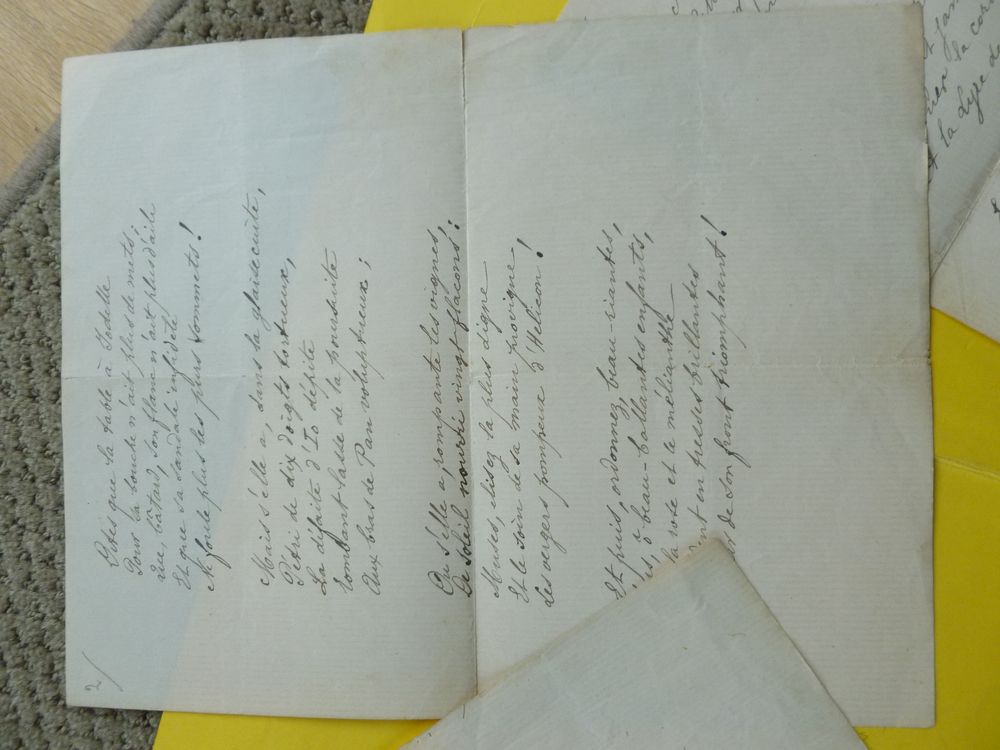 2/
Dites que la table à Jodelle
Pour la bouche n'ait plus de mets;
Que, bâtard, son flanc n'ait plus d'aile
Et que sa sandale infidèle
Ne foule plus les purs sommets!
Mais s'elle a, dans la glaise cuite,
Pétri de dix doigts tortueux,
La défaite d'Io dépite
Tombant lasse de la poursuite
Aux bras de Pan voluptueux;
Ou s'elle a les vignes,
De soleil nourri vingt flacons:
Muses, élisez la plus digne
Et le soin de sa main provigne
Les vergers pompeux d'Hélicon!
Et puis, ordonnez, beau-riantes,
ô beau-ballantes enfants,
la rose et le mélianthe
en tresses brillantes
de son front triomphant!
la
la Lyre de